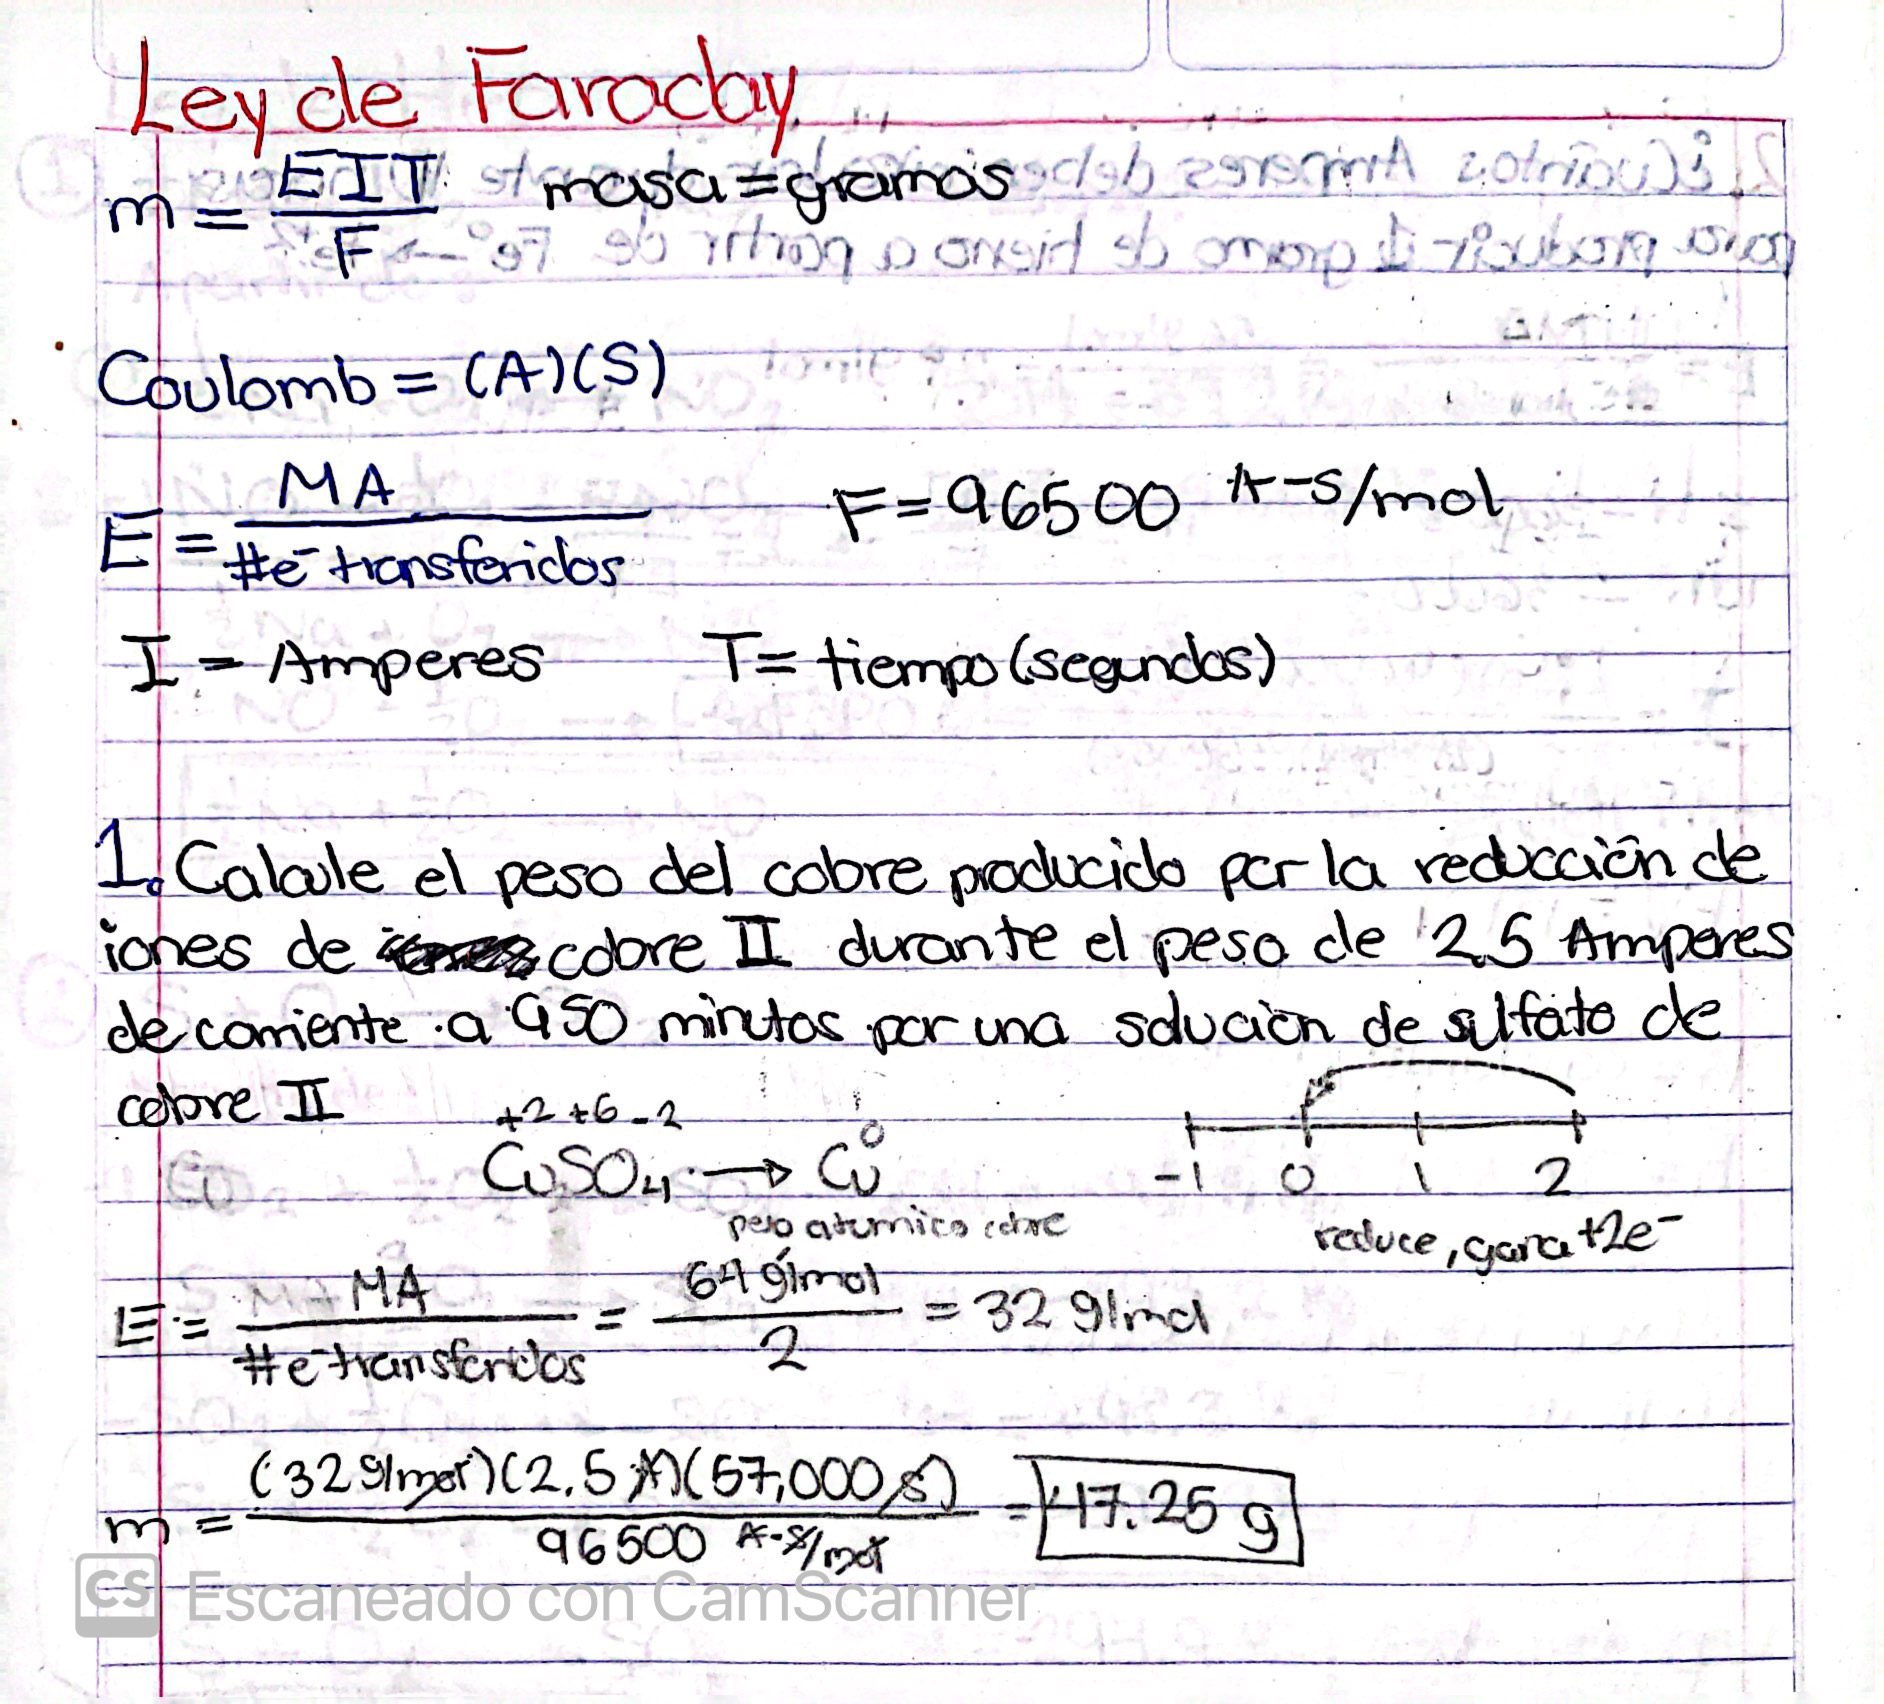 Ley de Faraday
m = EIT / F masa = gramos
Coulomb = (A)(S)
E = MA / #e⁻ transferidos F = 96500 A-S/mol
I = Amperes T = tiempo (segundos)
1. Calcule el peso del cobre producido por la reducción de
iones de cobre II durante el peso de 2.5 Amperes
de corriente a 950 minutos por una solución de sulfato de
cobre II
+2 +6 -2 0
CuSO4 → Cu
-1 0 1 2
peso atomico cobre
reduce, gana +2e⁻
E = MA / #e⁻ transferidos = 64 g/mol / 2 = 32 g/mol
m = (32 g/mol)(2.5 A)(57,000 s) / 96500 A-s/mol = 47.25 g
CS Escaneado con CamScanner